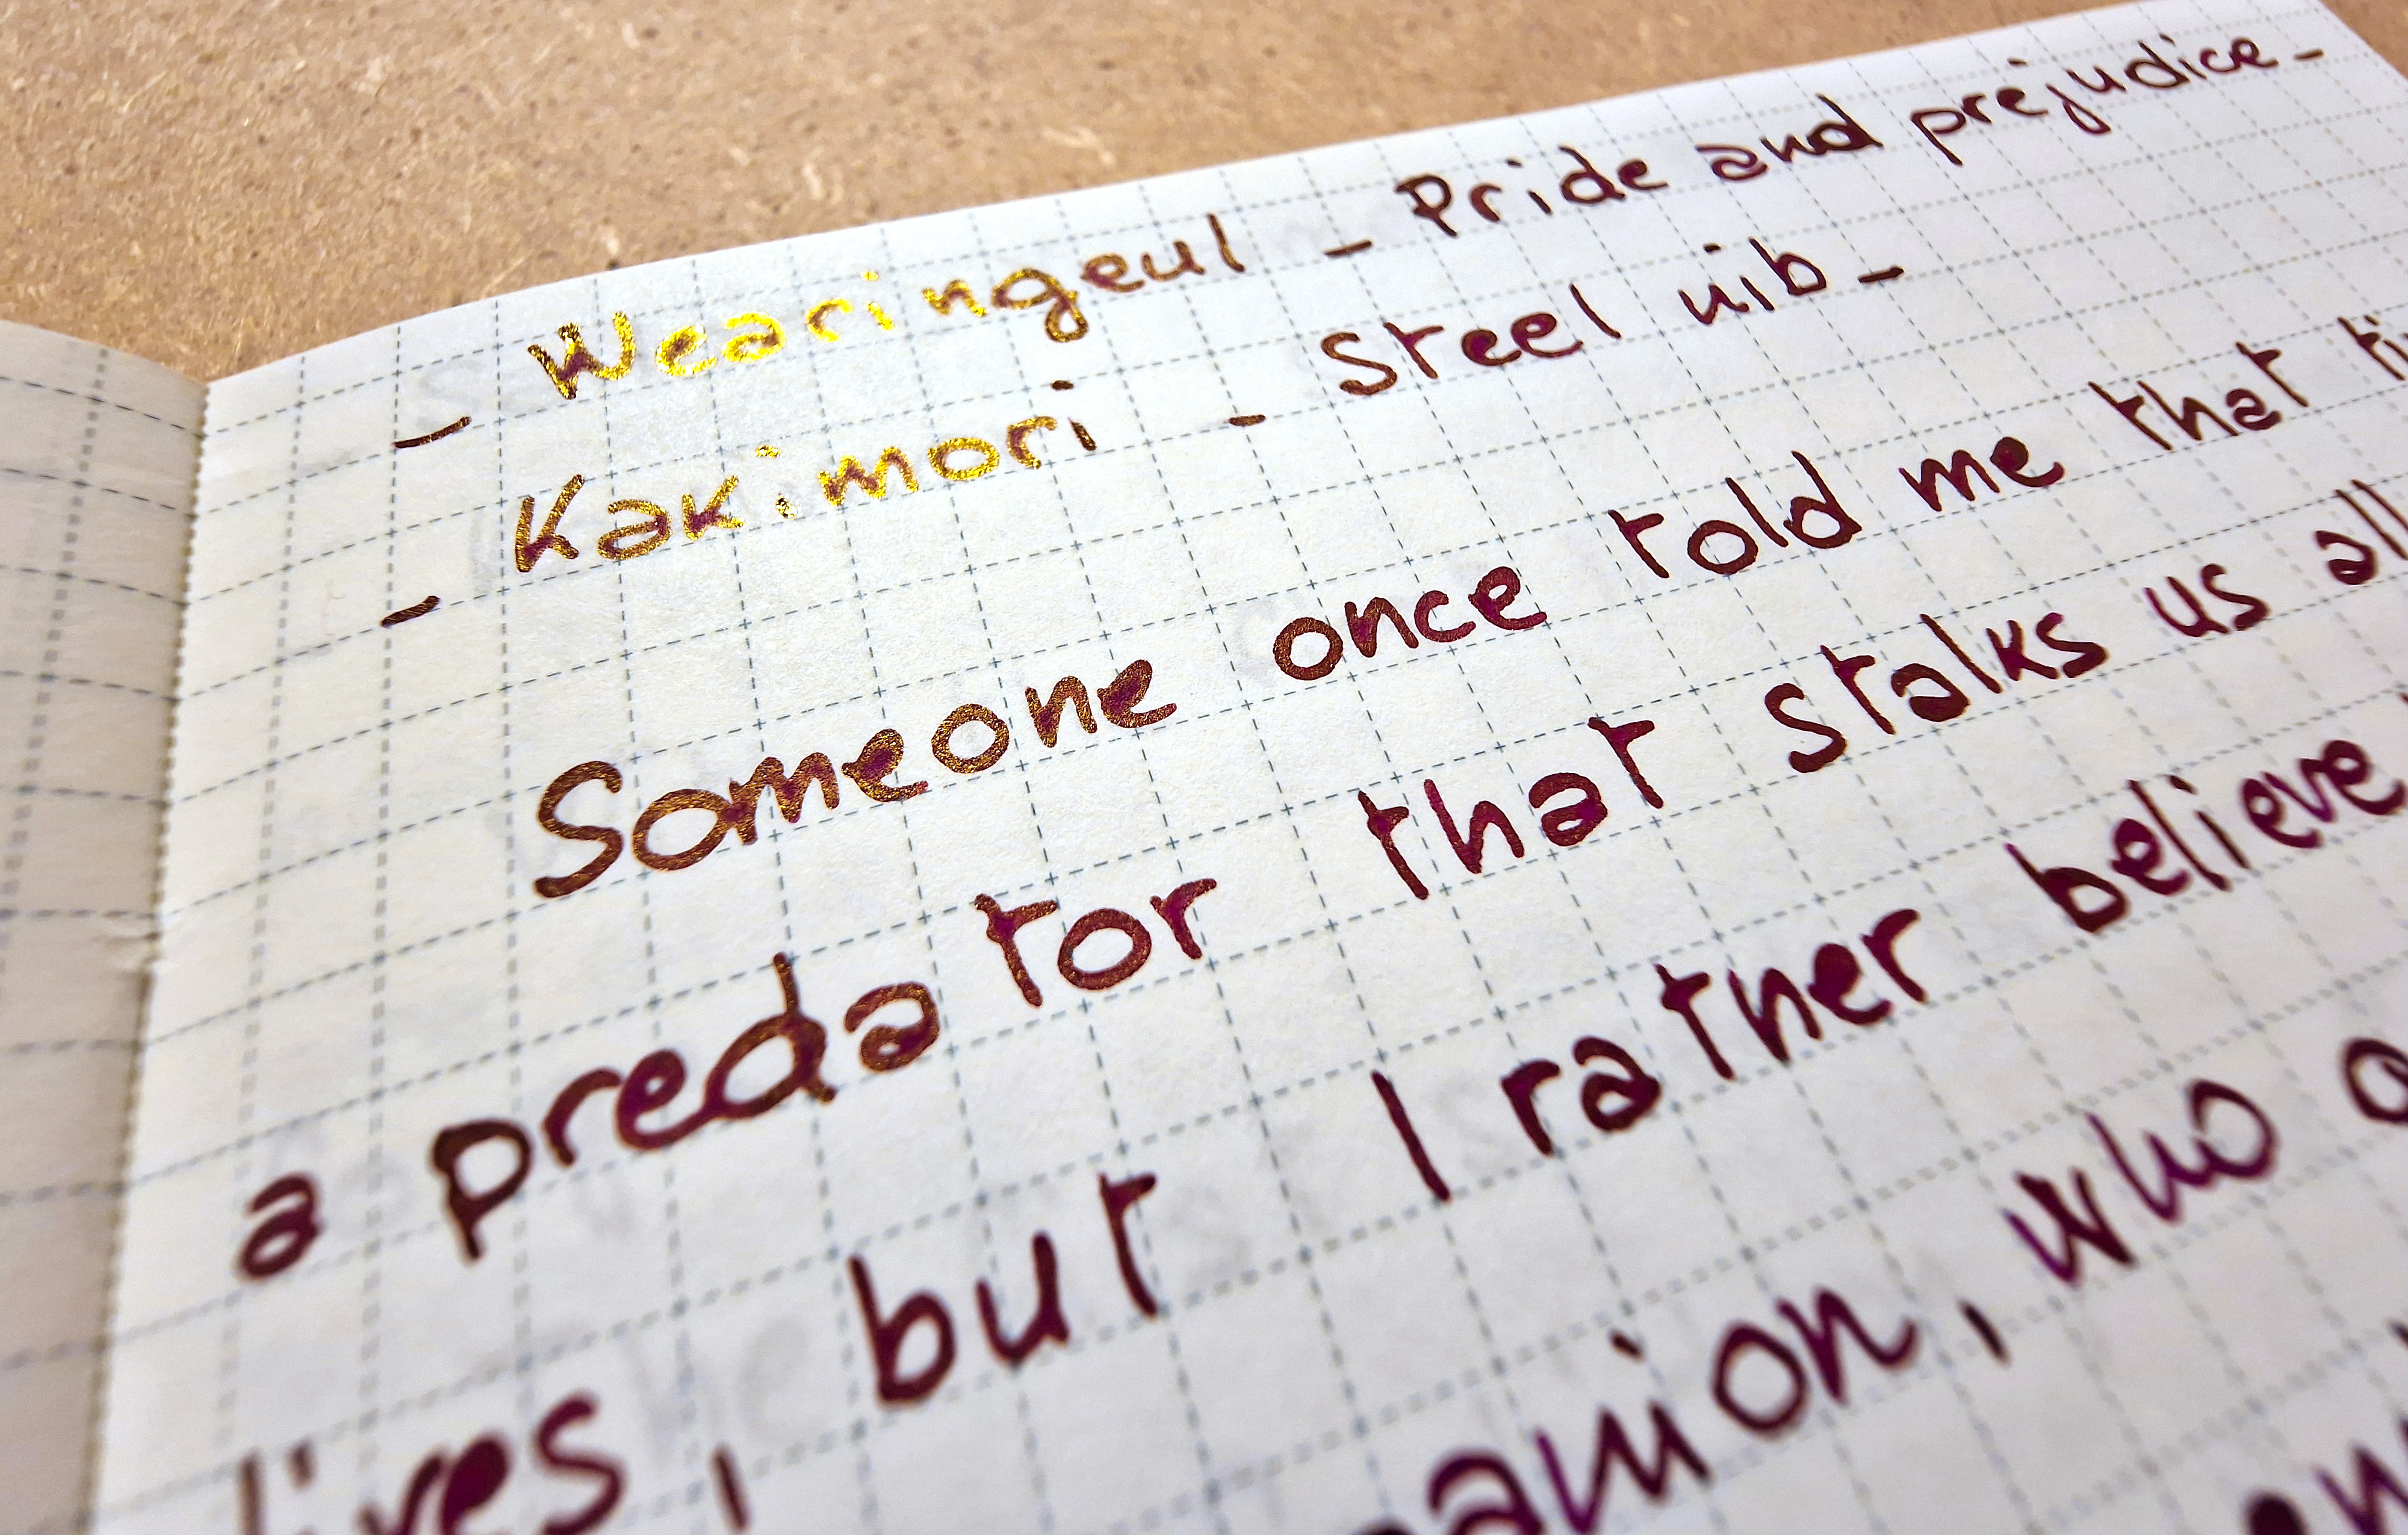 - Wearingeul - Pride and prejudice -
- Kakimori - Steel nib -
Someone once told me that
a predator that stalks us all
lives, but I rather believe
who